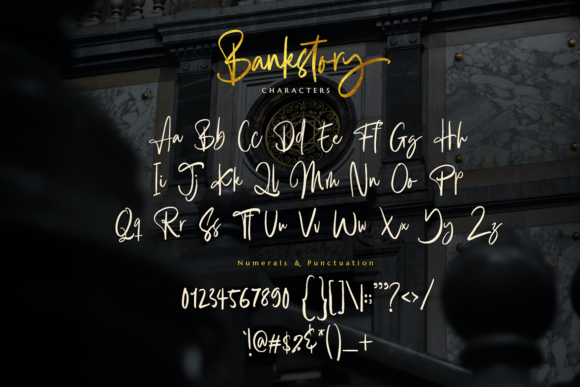 Bankstory
CHARACTERS
Aa Bb Cc Dd Ee Ff Gg Hh
Ii Jj Kk Ll Mm Nn Oo Pp
Qq Rr Ss Tt Uu Vv Ww Xx Yy Zz
Numerals & Punctuation
01234567890 {}[]\|:;"'?<>/
`!@#$%&*()_+